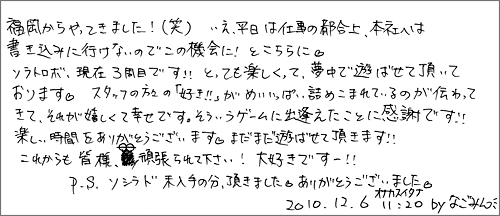 福岡からやってきました！(笑) いえ、平日は仕事の都合上、本社へは
書き込みに行けないのでこの機会に！とこちらに。
ソラトロボ、現在3周目です!! とっても楽しくって、夢中で遊ばせて頂いて
おります。スタッフの方々の「好き!!」がめいいっぱい詰めこまれているのが伝わって
きて、それが嬉しくて幸せです。そういうゲームに出逢えたことに感謝です!!
楽しい時間をありがとうございます。まだまだ遊ばせて頂きます!!
これからも皆様、頑張られて下さい！大好きですー!!
P.S. ソシラド 未入手の分、頂きました。ありがとうございました。
オナカスイタナ
2010.12.6 11:20 by なごみんつ